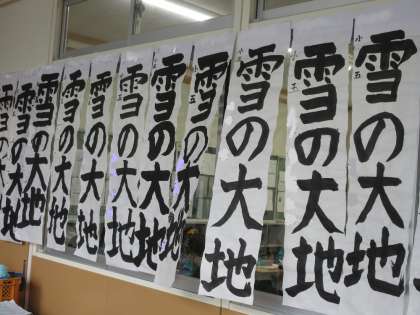 雪の大地
雪の大地
雪の大地
雪の大地
雪の大地
雪の大地
雪の大地
雪の大地
雪の大地
小五
雪の大地
小五
雪の大地
小五